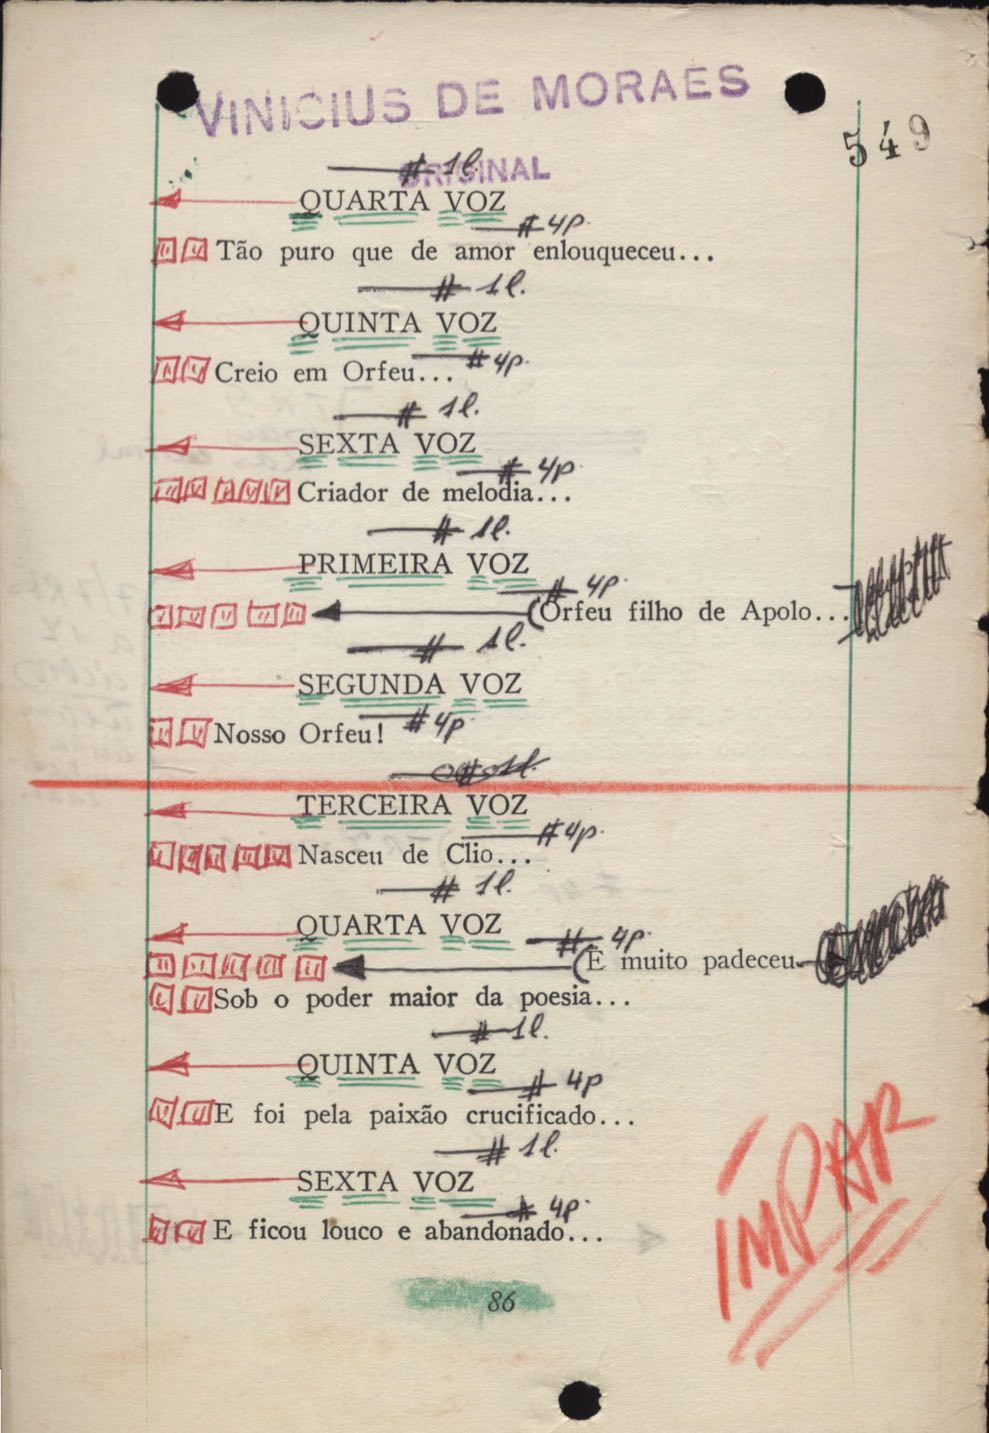 VINICIUS DE MORAES
549
# 1l.
ORIGINAL
QUARTA VOZ
# 4p.
Tão puro que de amor enlouqueceu...
# 1l.
QUINTA VOZ
# 4p.
Creio em Orfeu...
# 1l.
SEXTA VOZ
# 4p
Criador de melodia...
# 1l.
PRIMEIRA VOZ
# 4p.
(Orfeu filho de Apolo...
# 1l.
SEGUNDA VOZ
# 4p
Nosso Orfeu!
TERCEIRA VOZ
# 4p.
Nasceu de Clio...
# 1l.
QUARTA VOZ
# 4p.
(E muito padeceu
Sob o poder maior da poesia...
# 1l.
QUINTA VOZ
# 4p
E foi pela paixão crucificado...
# 1l.
SEXTA VOZ
# 4p.
E ficou louco e abandonado...
ÍMPAR
86